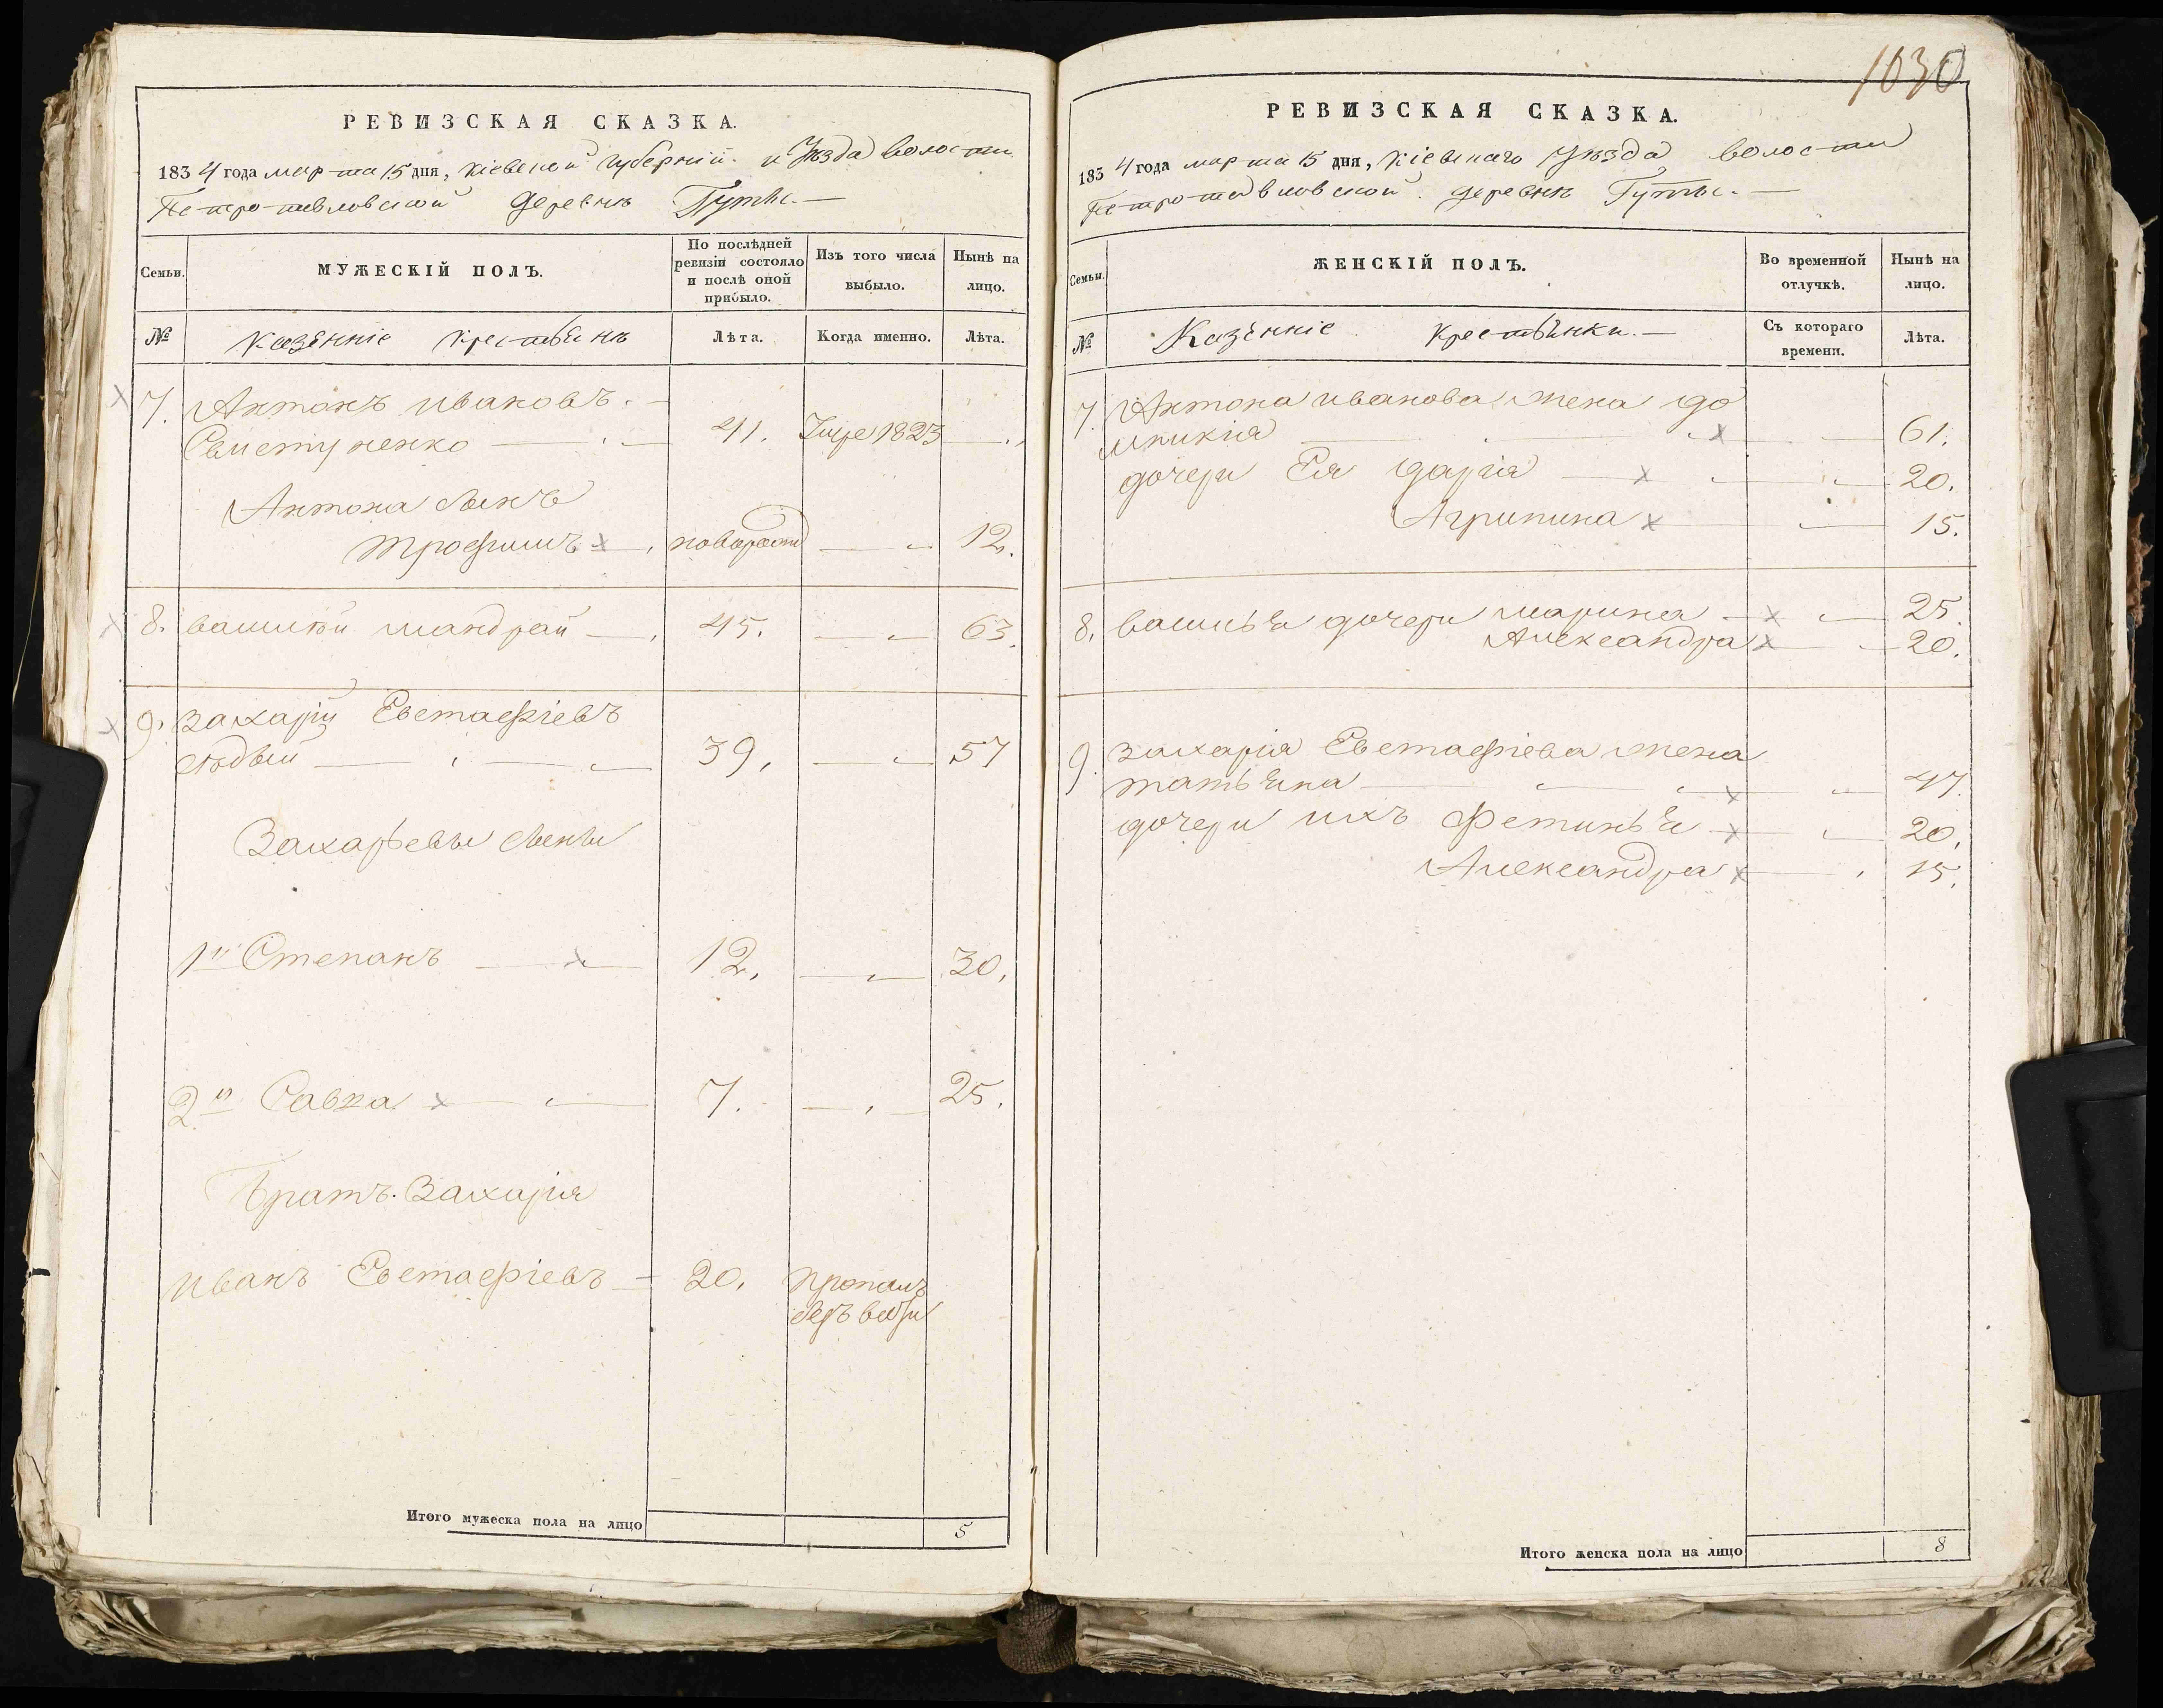 РЕВИЗСКАЯ СКАЗКА.
1834 года марта 15 дня, Кіевской губерніи и Уѣзда волости
Петропавловской деревнѣ Гутѣ.
Семьи.
МУЖЕСКІЙ ПОЛЪ.
По послѣдней ревизіи состояло и послѣ оной прибыло.
Изъ того числа выбыло.
Нынѣ на лицо.
№
Казенніе крестьянѣ
Лѣта.
Когда именно.
Лѣта.
7. Антонъ Ивановъ
41. 1823
Антона сынъ
Трофимъ 12.
8. Василій мандрай 45. 63.
9. Захарій Евстафіевъ
сѣдый 39. 57
Захарьевы сыны
1й Степанъ 12. 30.
2й Савка 7. 25.
Братъ Захарія
Иванъ Евстафіевъ 20. пропалъ
Итого мужеска пола на лицо 5
1030
РЕВИЗСКАЯ СКАЗКА.
1834 года марта 15 дня, Кіевскаго Уѣзда волости
Петропавловской деревнѣ Гутѣ.
Семьи.
ЖЕНСКІЙ ПОЛЪ.
Во временной отлучкѣ.
Нынѣ на лицо.
№
Казенніе крестьянки.
Съ котораго времени.
Лѣта.
7. Антона Иванова жена До
мникія 61.
дочери Ея Дарія 20.
Агрипина 15.
8. Василья дочери Марина 25.
Александра 20.
9. Захарія Евстафіева жена
татьяна 47.
дочери ихъ Фетинья 20.
Александра 15.
Итого женска пола на лицо 8